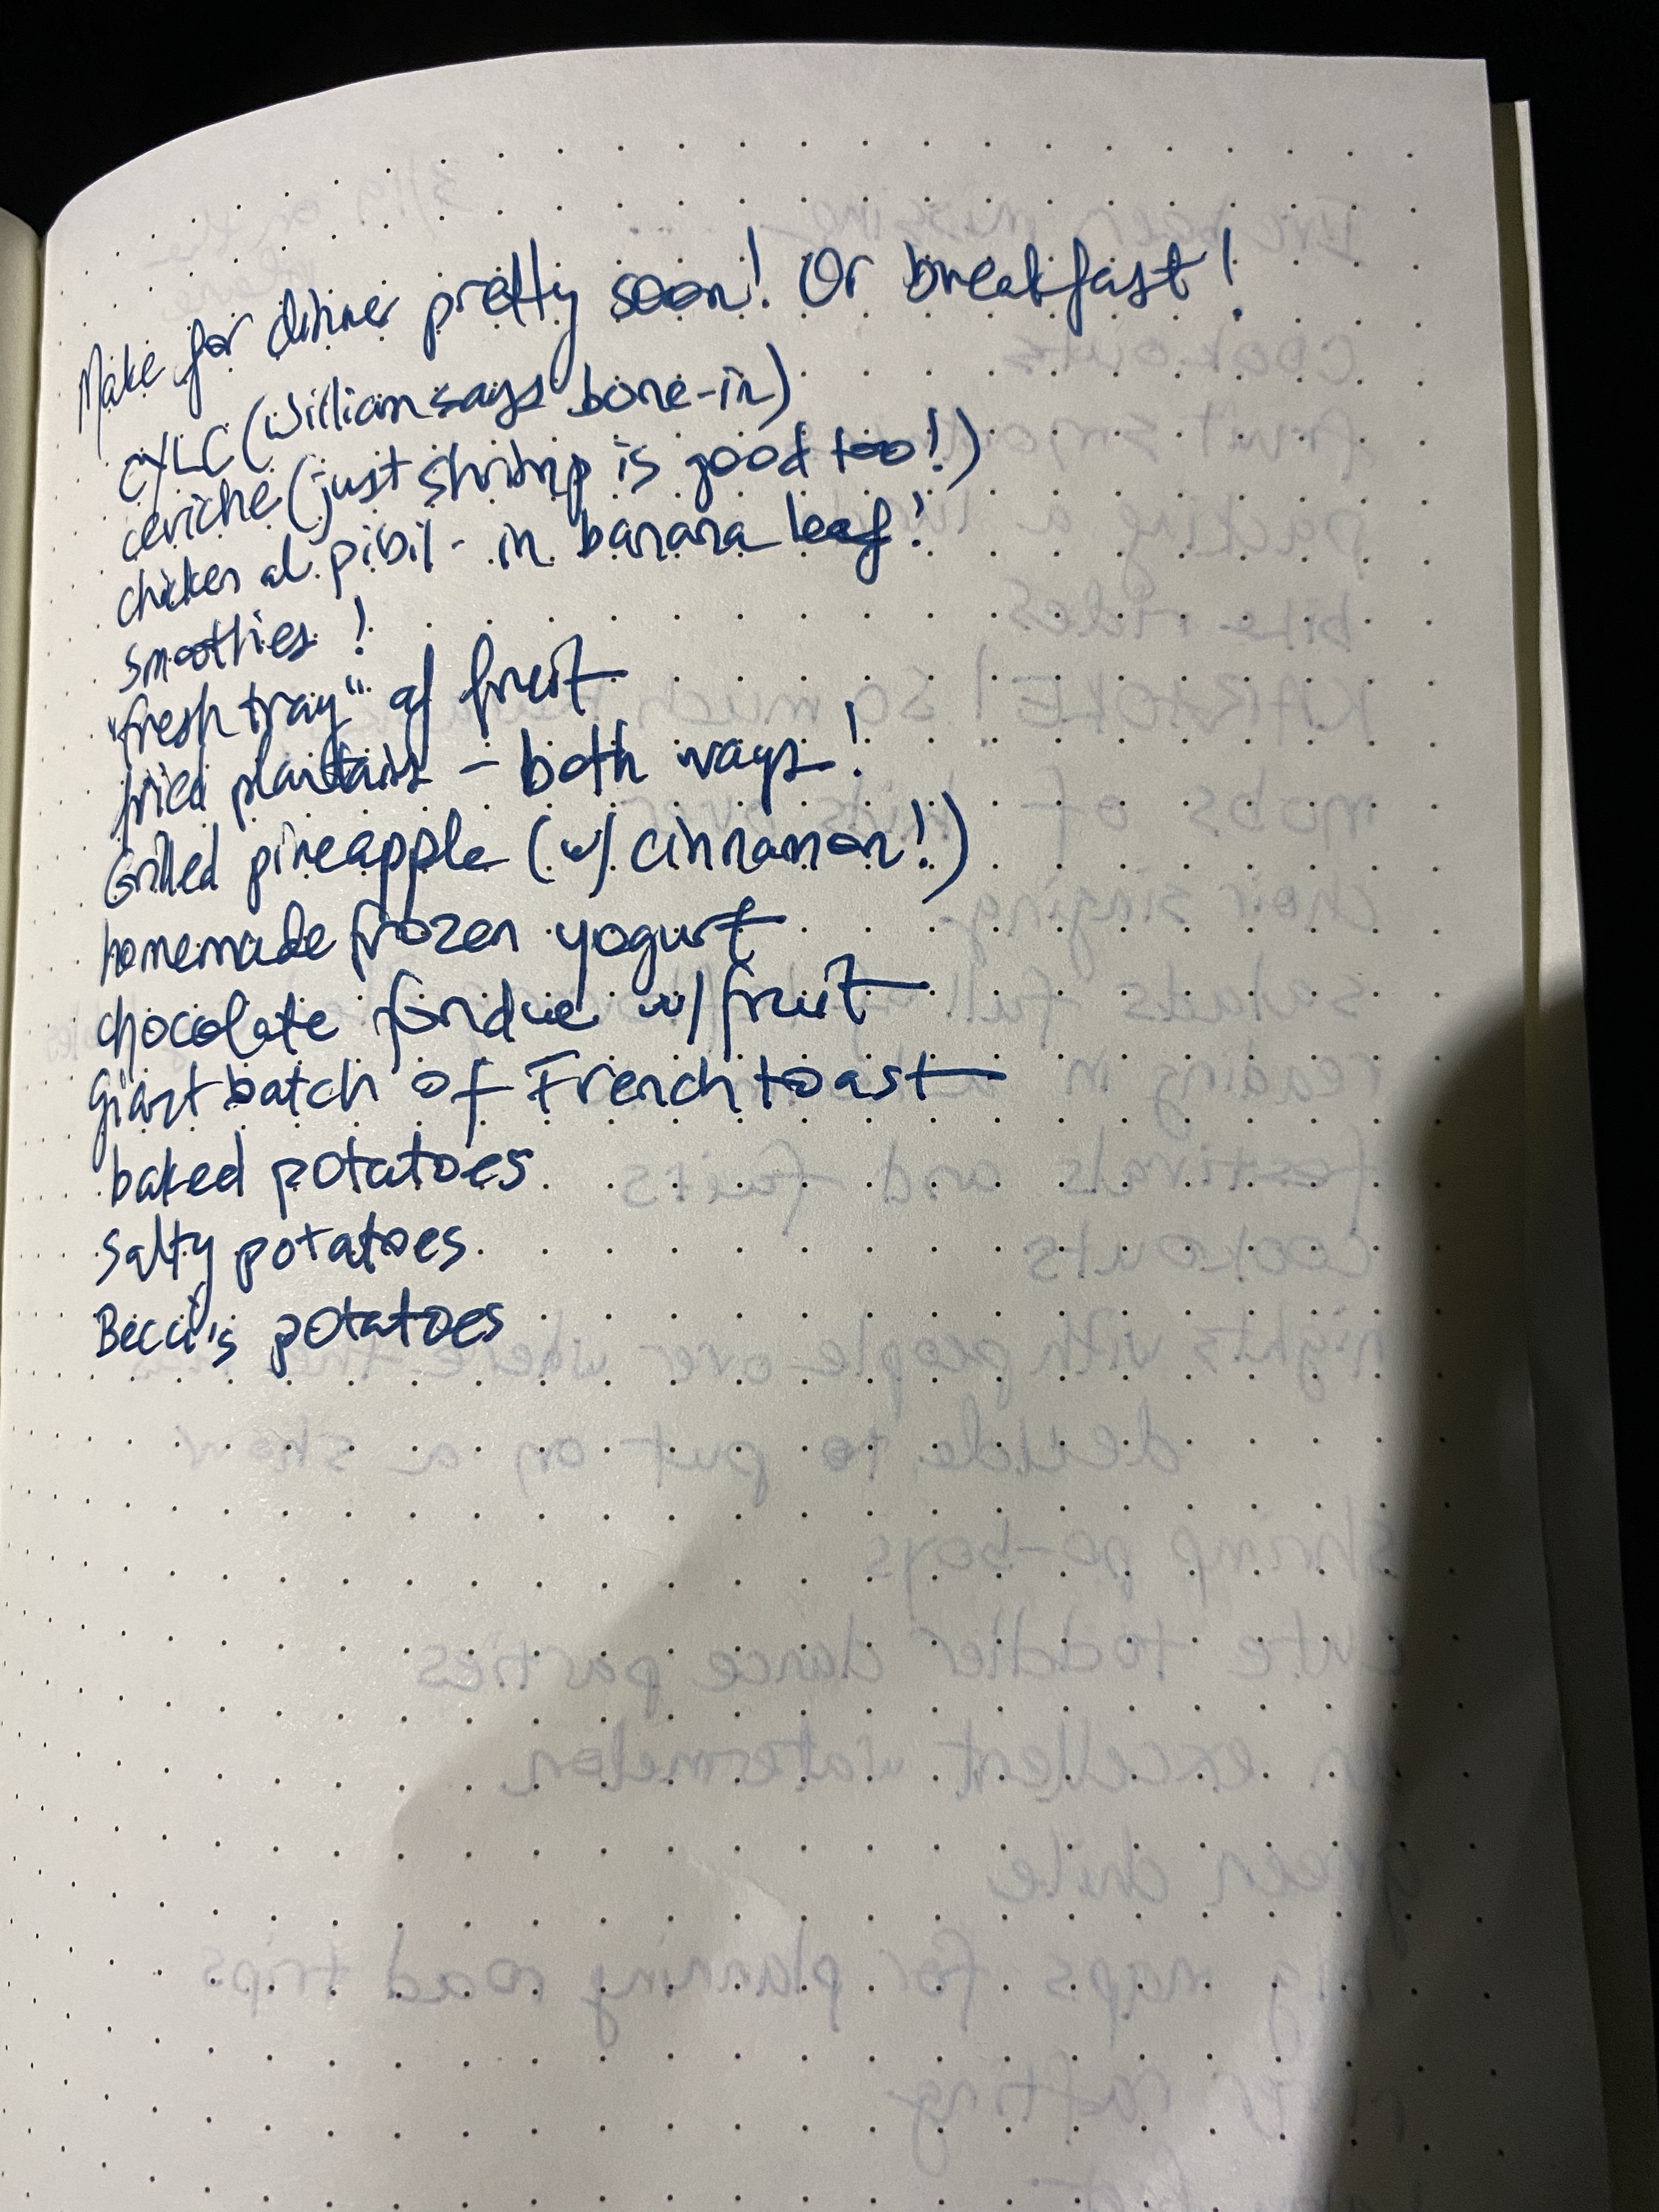 Make for dinner pretty soon! Or breakfast!
CYLC (William says bone-in)
ceviche (just shrimp is good too!)
chicken al pibil - in banana leaf!
smoothies!
"fresh tray" of fruit
fried plantains - both ways!
Grilled pineapple (w/ cinnamon!)
homemade frozen yogurt
chocolate fondue w/ fruit
Giant batch of French toast
baked potatoes
salty potatoes
Becci's potatoes